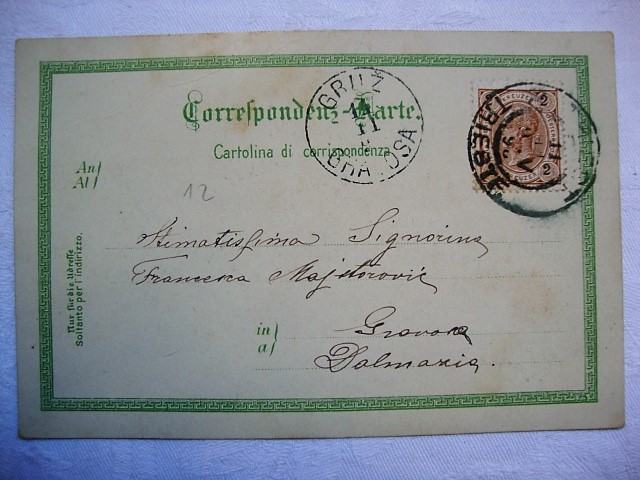 Correspondenz-Karte.
Cartolina di corrispondenza
GRUŽ
14
11
GRAVOSA
2 KREUZER 2
2
TRIEST
TRIESTE
An
Al
12
Stimatissima Signorina
Francesca Majstorović
in
a
Gravosa
Dalmazia.
Nur für die Adresse
Soltanto per l'indirizzo.